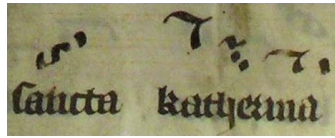 sancta katherina